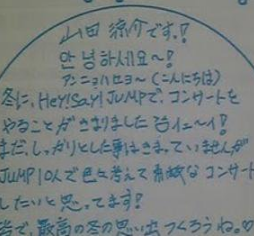 山田 涼介です。!
안녕하세요~!
アンニョハセヨ~(こんにちは)
冬に、Hey!Say!JUMPで、コンサートを
やることがきまりました イェ~イ!
まだ、しっかりとした事はきまっていませんが
JUMP10人で色々考えて素敵なコンサート
したいと思ってます!
皆で、最高の冬の思い出つくろうね。♡